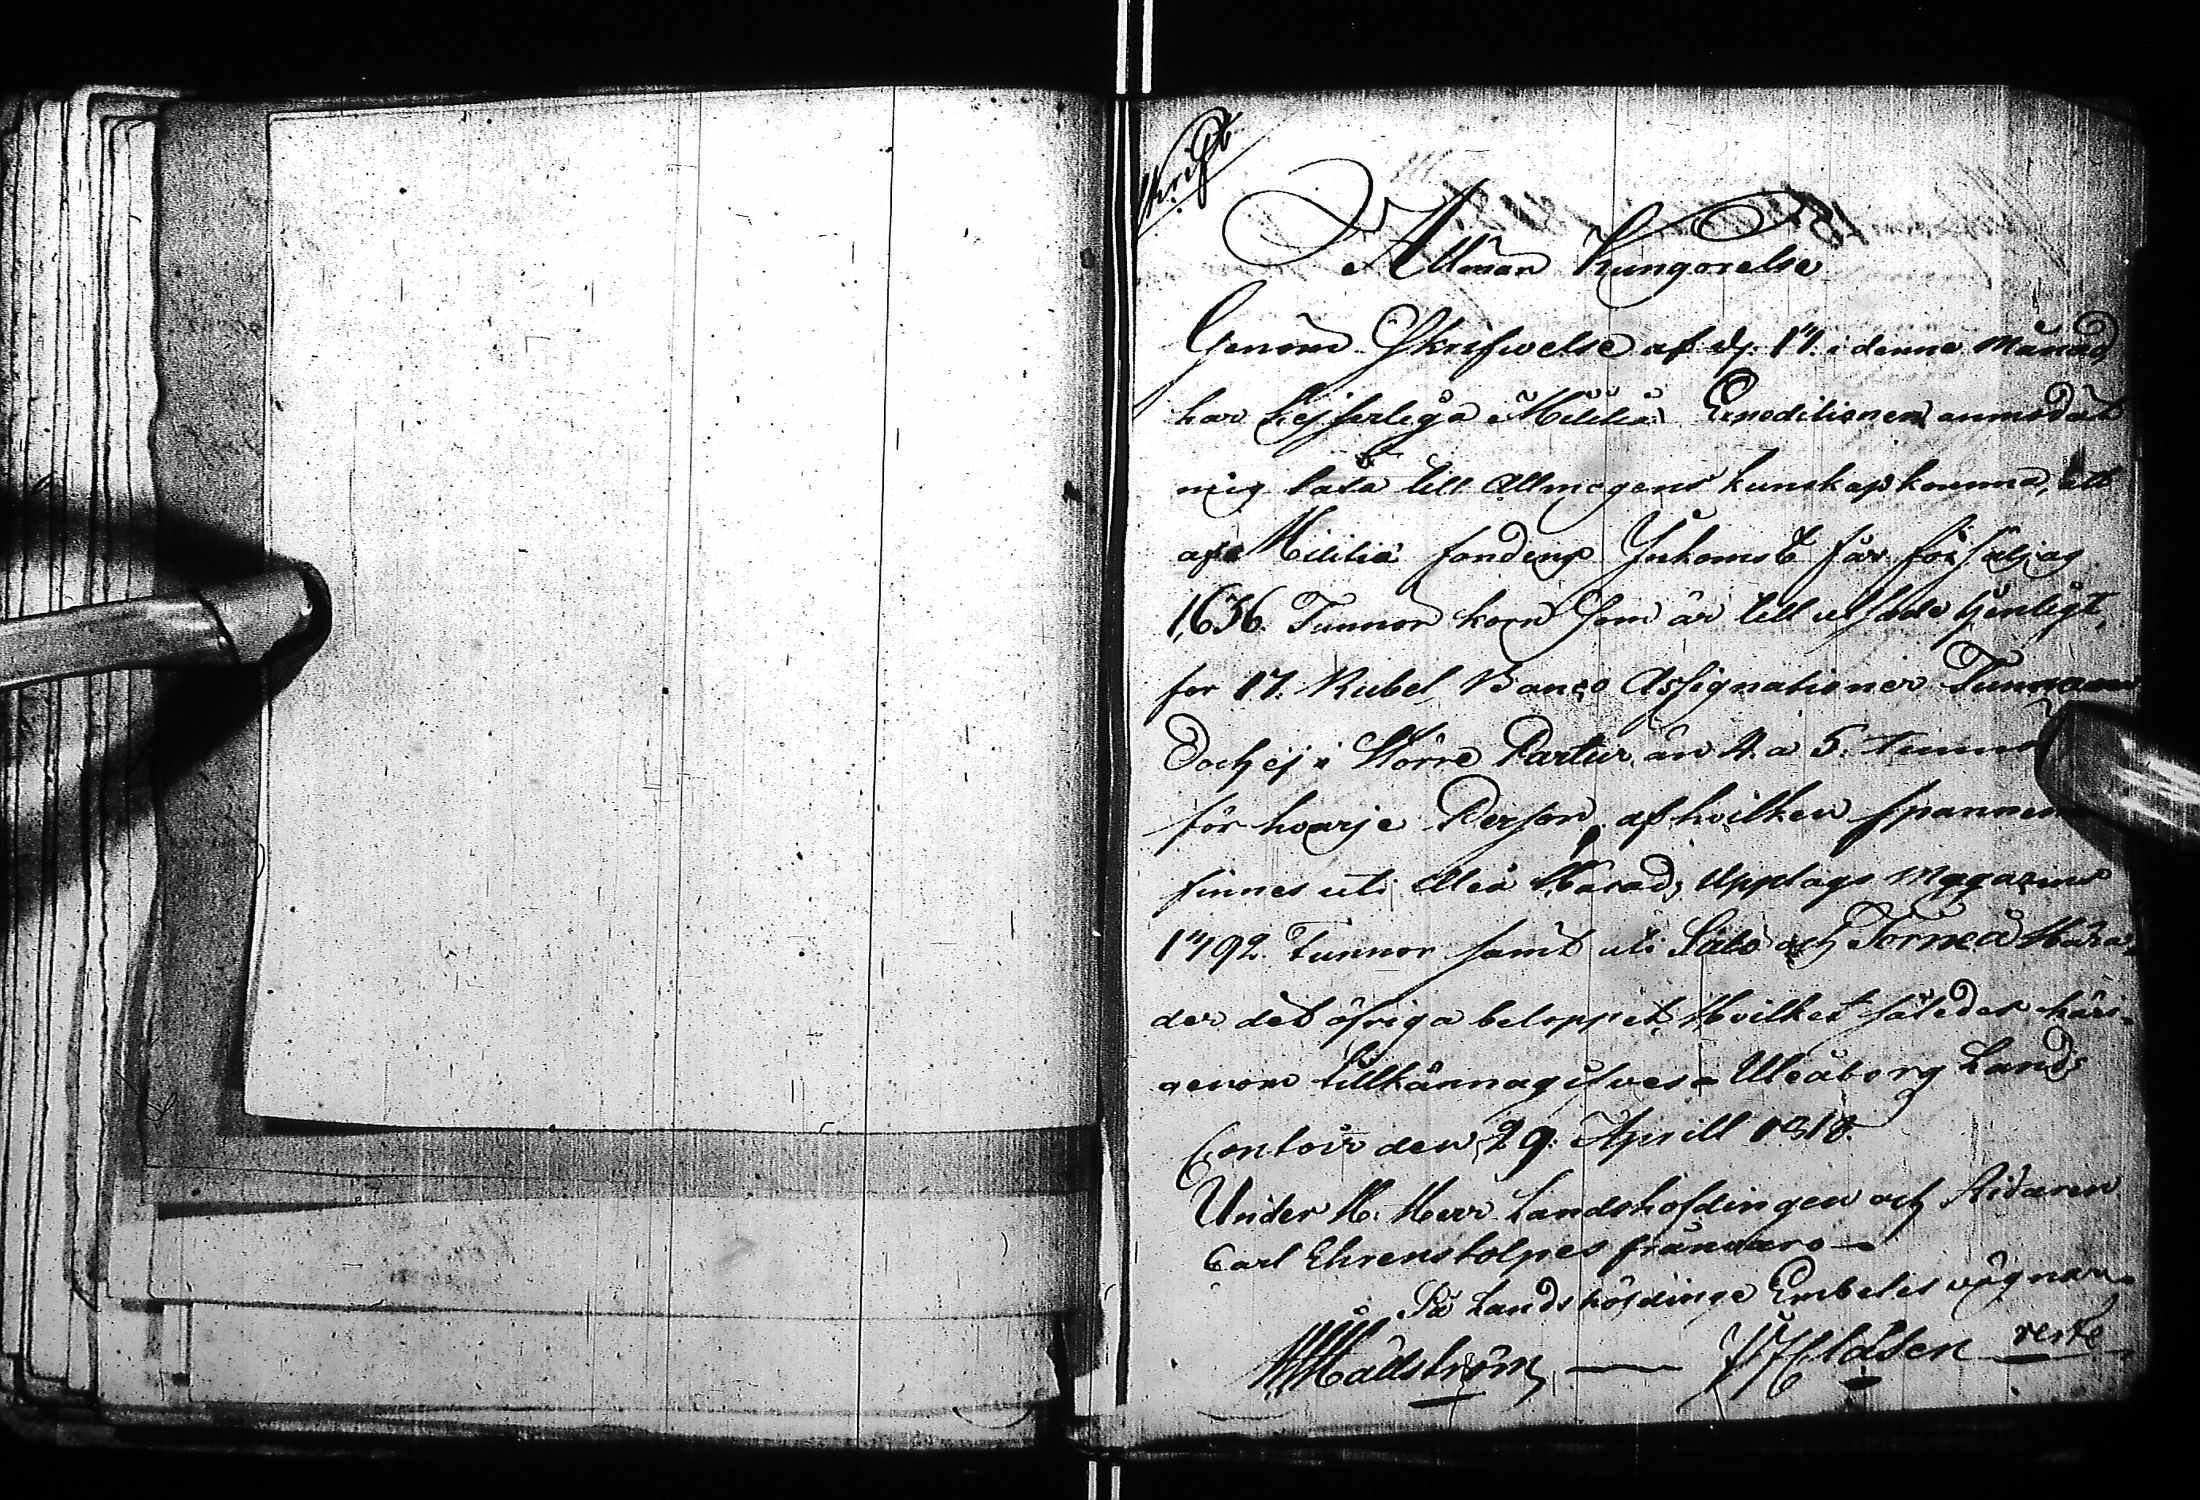 Allmän Kungörelse
Genom Skrifwelse af d. 17. i denne Månad,
har Kejserliga Militiæ Expeditionen anmodat
mig låta till Allmogens kunskap komma, att
af Militiæ fondens Inkomst får försäljas
1,636. Tunnor korn som är till utsäde tjenligt,
for 17. Rubel Banco Assignationer Tunnan
Doch ej i Större Partier än 4. a 5. tunnor
för hvarje Person, af hvilken spannemål
finnes uti Uleå Härads Upplags Magazins
1492. Tunnor samt uti Salo och Torneå Hära-
der det öfriga beloppet, Hvilket således häri-
genom tillkännagifves. Uleåborg Lands
Contoir den 29. Aprill 1818.
Under H. Herr Landshöfdingen och Ridaren
Carl Ehrenstolpes frånvaro
På Landshöfdinge Embetes vägnar
Wadström J F Eldsen